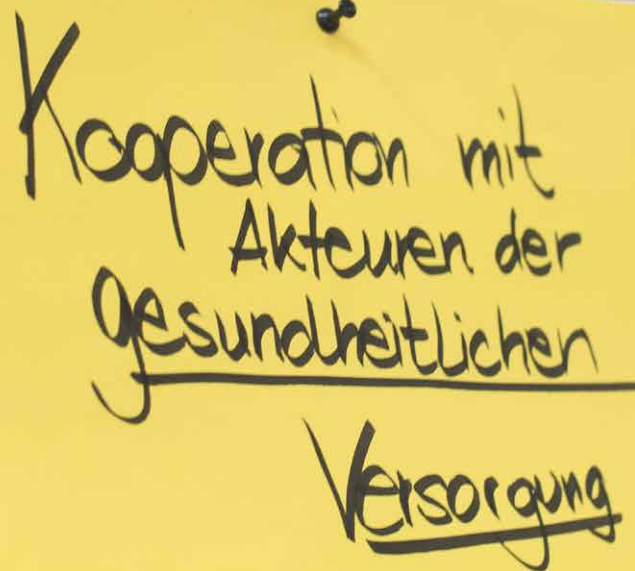 Kooperation mit
Akteuren der
gesundheitlichen
Versorgung